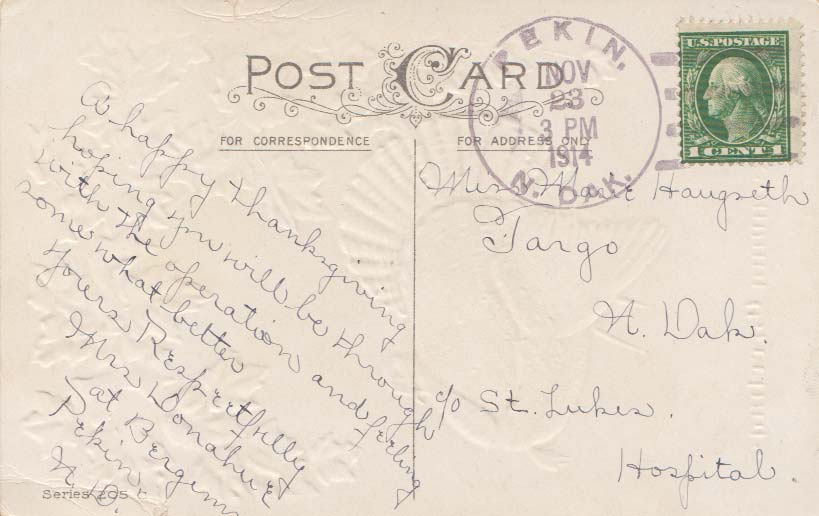 POST CARD
FOR CORRESPONDENCE
FOR ADDRESS ONLY
PEKIN,
NOV
23
3 PM
1914
N. DAK.
U.S. POSTAGE
1 CENT 1
A happy thanksgiving
hoping you will be through
with the operation and feeling
somewhat better
yours Respectfully
Mrs Donahue
at Bergems
Pekin,
N. D.
Miss Marie Haugseth
Fargo
N. Dak.
c/o St. Lukes.
Hospital.
Series 205 C